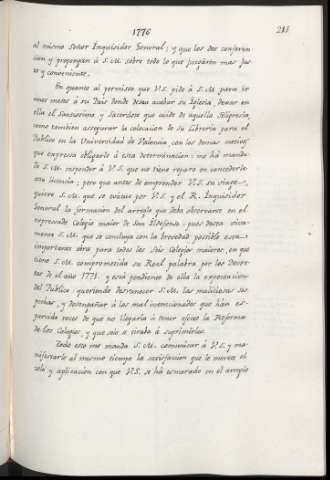 1776
215
al mismo Señor Inquisidor General; y que los dos conferen-
cien y propongan á S.M. sobre todo lo que juzgáren mas jus-
to y conveniente.
En quanto al permiso que V.S. pide á S.M. para ir
unos meses á su Pais donde desea acabar su Iglesia, dexar en
ella el Santisimo y Sacerdote que cuide de aquella Feligresia,
como tambien asegurar la colocacion de su Libreria para el
Publico en la Universidad de Valencia, con los demas motivos
que expresa obligarle á esta determinacion: me há manda-
do S.M. responder á V.S. que no tiene reparo en concederle
esa licencia; pero que antes de emprender V.S. su viage,
quiere S.M. que se evacue por V.S. y el R. Inquisidor
General la formacion del arreglo que deba observarse en el
expresado Colegio maior de San Ildefonso: pues desea viva-
mente S.M. que se concluya con la brevedad posible esta
importante obra para todos los seis Colegios maiores, en que
tiene S.M. comprometida su Real palabra por los Decre-
tos de el año 1771. y está pendiente de ella la expectacion
del Publico: queriendo desvanecer S.M. las maliciosas sos-
pechas, y desengañar á los mal intencionados que hán es-
parcido voces de que no llegaria á tener efecto la Reforma
de los Colegios, y que solo se tiraba á suprimirlos.
Todo esto me manda S.M. comunicar á V.S. y ma-
nifestarle al mismo tiempo la satisfaccion que le merece el
zelo y aplicacion con que V.S. se há esmerado en el arreglo